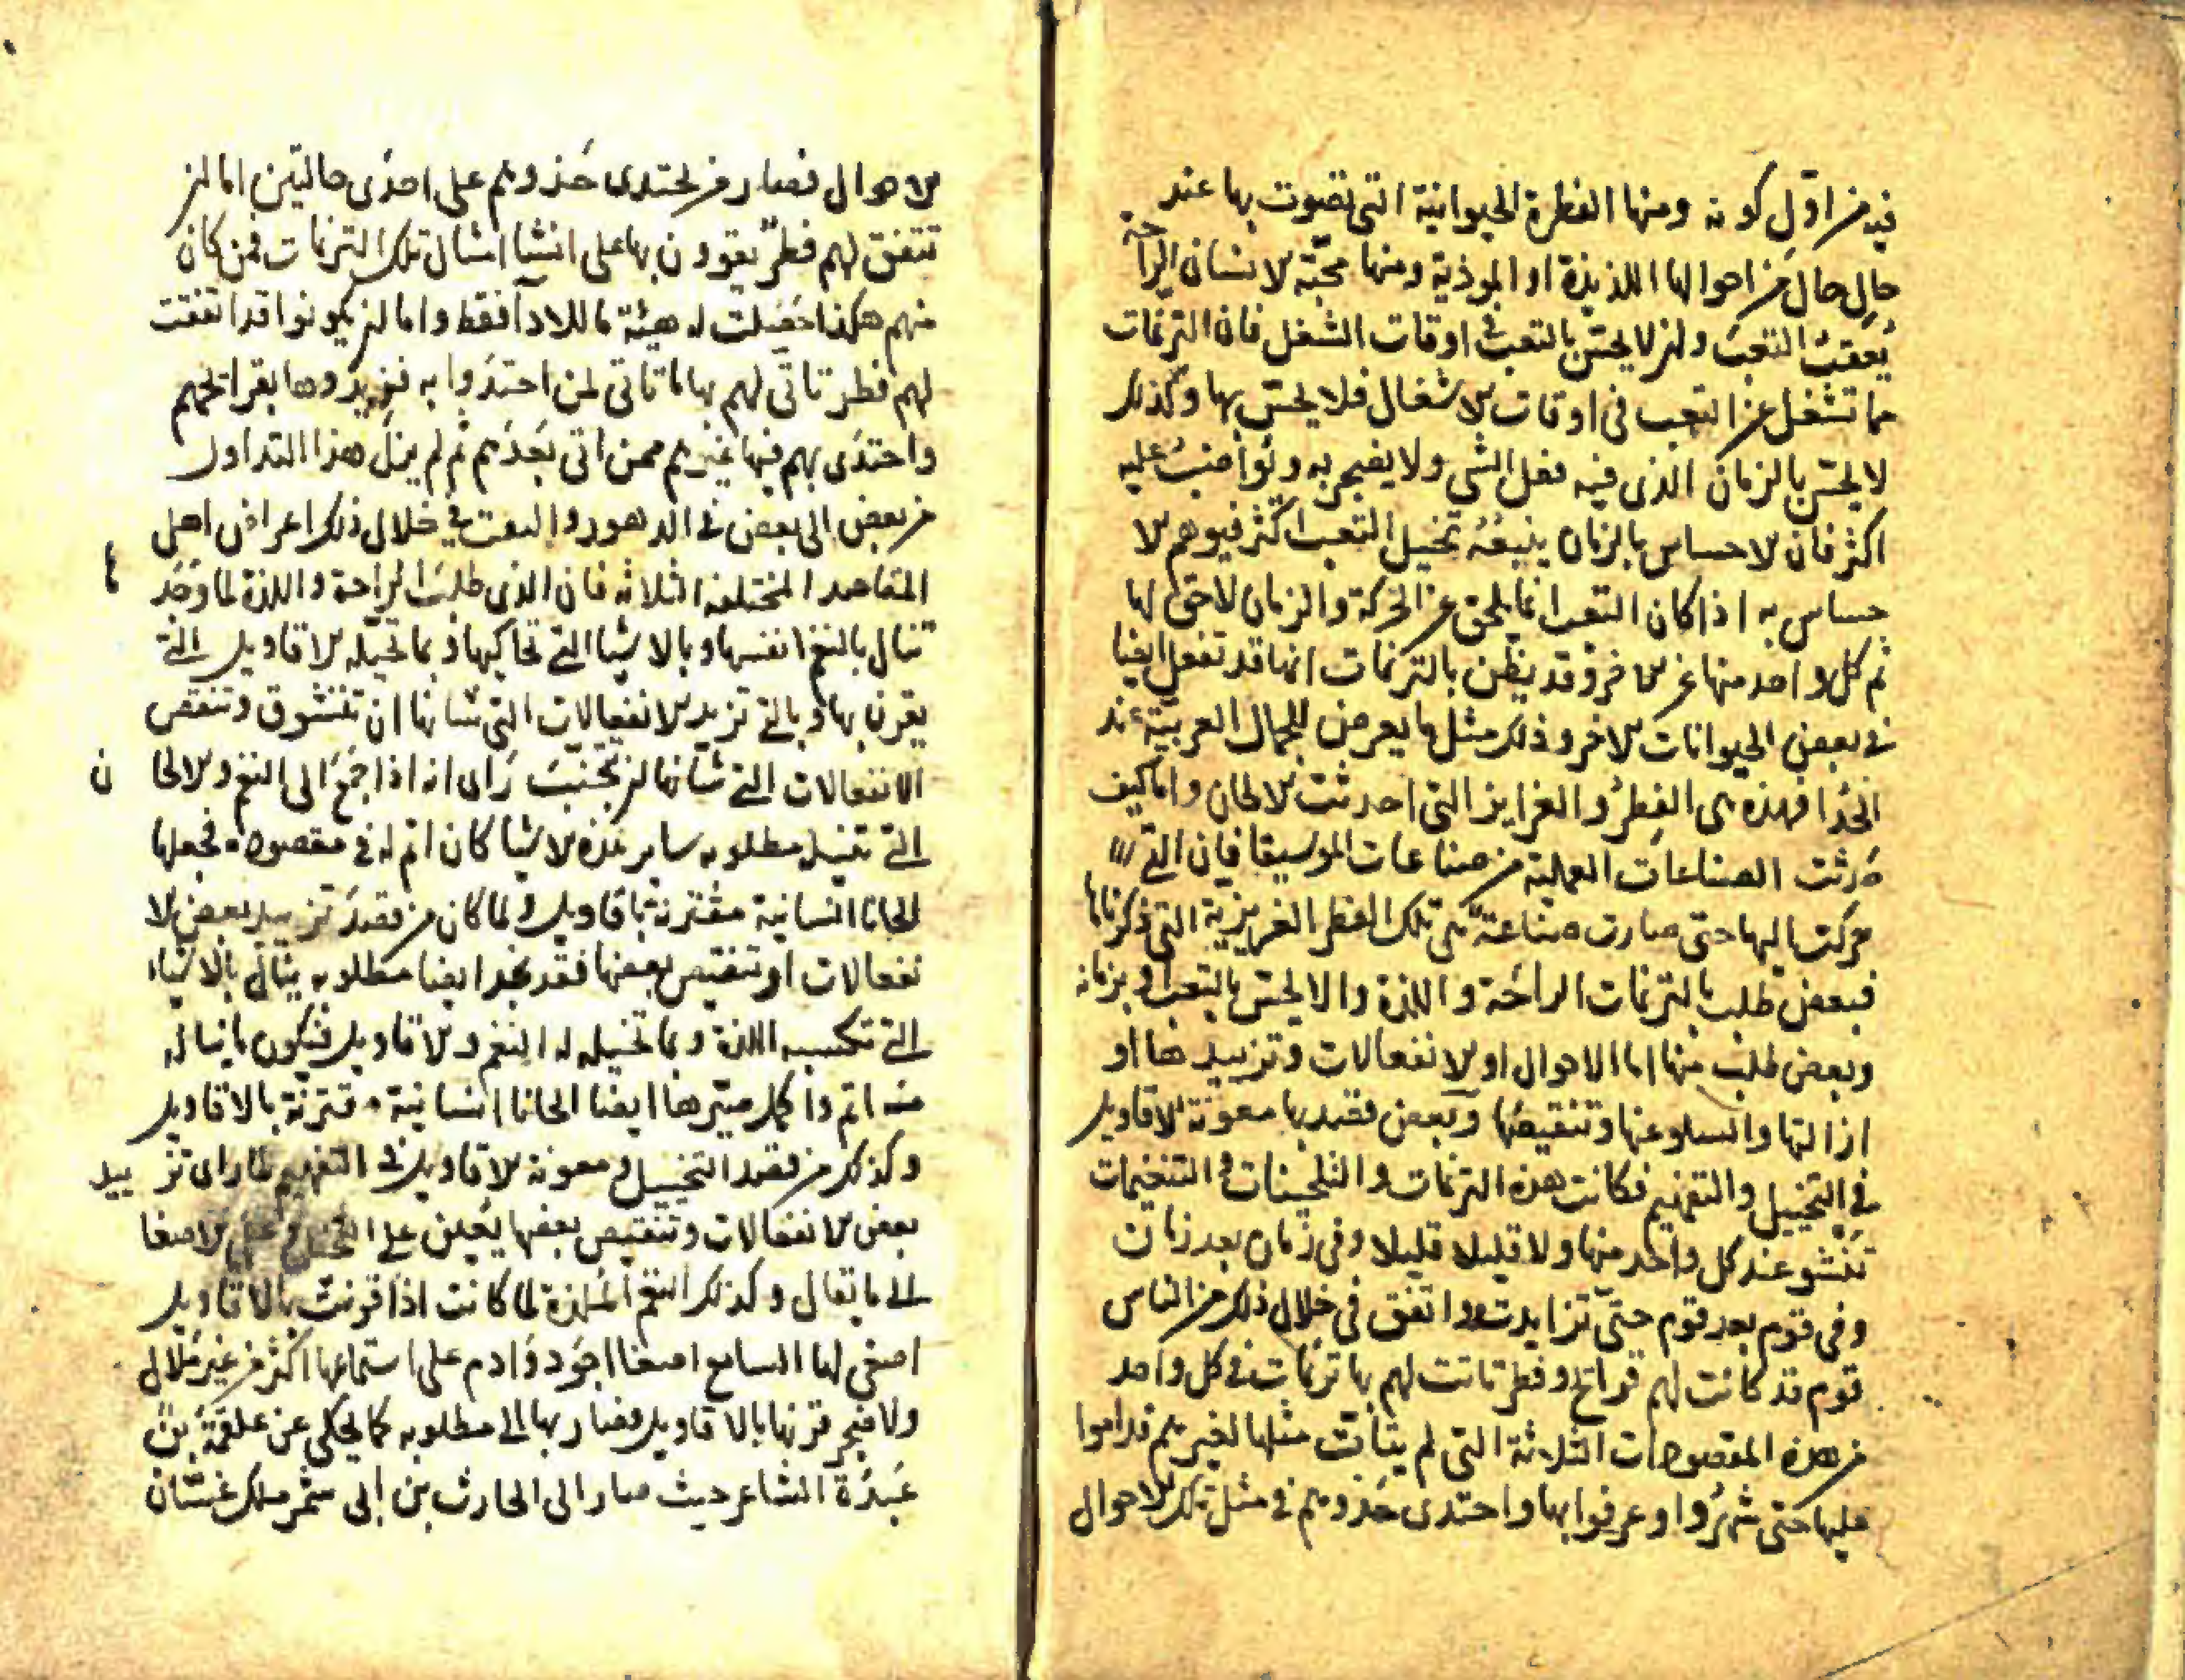 فيه من اوّل كونه ومنها الفطرة الحيوانية التى تصوت بها عند
حالٍ حال من احوالها اللذيذة او الموذية ومنها محبّة الانسان الراحة
بعقب التعب وان لا يحسّ بالتعب فى اوقات الشغل فان الترنمات
مما تشغل عن التعب فى اوقات الاشغال فلا يحسّ بها وكذلك
لا يحسّ بالزمان الذى فيه فعل الشى ولا يضجر به ويواضب عليه
اكثر فان الاحساس بالزمان يتبعه تخيل التعب اكثر فيوهم الا
حساس به اذ كان التعب انما يلحق عن الحركة والزمان لاحق لها
ثم كل واحد منها عن الاخر وقد يظن بالترنمات انها قد تفعل ايضا
فى بعض الحيوانات الاخر وذلك مثل ما يعرض للجمال العربيّة عند
الحُدا فهذه هى الفِطَر والغرايز التى احدثت الالحان واما كيف
حدثت الصناعات العملية من صناعات الموسيقا فان التى
حركت اليها حتى صارت صناعة هى تلك الفطر الغريزية التى ذكرناها
فبعض طلب بالترنمات الراحة واللذة والا يحسّ بالتعب او بزمانه
وبعض طلب منها اما الاحوال او الانفعالات وتزييدها او
ازالتها والسلو عنها وتنقيصها وبعض قصد بها معونة الاقاويل
فى التخييل والتفهيم فكانت هذه الترنمات والتلحينات والتنغيمات
تنشو عند كل واحد منها ولا قليلا قليلا وفى زمان بعد زمان
وفى قوم بعد قوم حتى تزايدت واتفق فى خلال ذلك من الناس
قوم قد كانت لهم قرائح وفطر تاتت لهم بها ترنمات فى كل واحد
من هذه المقصودات الثلاثة التى لم يتأت مثلها لغيرهم فداموا
عليها حتى شهروا وعرفوا بها واحتدى حذوهم فى مثل تلك الاحوال
الاحوال فصار من يحتدى حذوهم على احدى حالتين اما ان
تتفق لهم فطر يقوون بها على انشا امثال تلك الترنمات فمن كان
منهم هكذا حصلت له هيئة ما للادا فقط واما ان يكونوا قد اتفقت
لهم فطر تاتّى لهم بها ما تاتى لمن احتدوا به فزيدوها بقرائحهم
واحتدى بهم فيها غيرهم ممن اتى بعدهم ثم لم يزل هذا التداول
من بعض الى بعض فى الدهور والتفت فى خلال ذلك اعراض اهل
المقاصد المختلفه الثلاثه فان الذى طلب الراحة واللذة لما وجدها
تنال بالنغم انفسها وبالاشيا التى تحاكيها وبما تخيله الاقاويل التى
يقرن بها وبالتى تزيد الانفعالات التى شانها ان تتشوق وتنقص
الانفعالات التى شانها ان تجتنب رأى انه اذا جمع الى النغم والالحان
التى تنيل مطلوبه ساير هذه الاشيا كان اتم له فى مقصوده فجعلها
الحانا انسانية مقترنة باقاويل ولما كان من قصد تزييد بعض الا
نفعالات او تنقيص بعضها فقد يجد ايضا مطلوبه ينال بالاشياء
التى تكسبه اللذة وبما تخيله له النغم والاقاويل فيكون ما يناله
منه اتم واكمل صيّرها ايضا الحانا انسانية مقترنة بالاقاويل
وكذلك من قصد التخييل ومعونة الاقاويل فى التفهيم لما راى تزييد
بعض الانفعالات وتنقيص بعضها يعين على التخيل وعلى الاصغا
الى ما يقال وكذلك النغم الملذة لما كانت اذا قرنت بالاقاويل
اصغى لها السامع اصغا اجود وادم على استماعها اكثر من غير ملال
ولا ضجر قرنها بالاقاويل فصار بها الى مطلوبه كما يحكى عن علقمة بن
عَبَدَة الشاعر حيث صار الى الحارث بن ابى شمر ملك غسّان